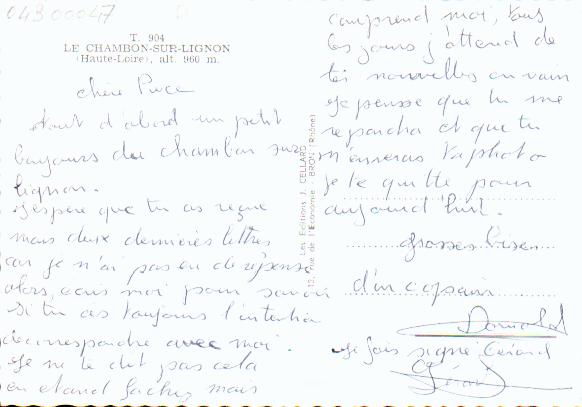 04300047
T. 904
LE CHAMBON-SUR-LIGNON
(Haute-Loire), alt. 960 m.
chère Puce
tout d'abord un petit
bonjours du chambon sur
lignon.
j'espère que tu as reçue
mais deux dernières lettres
car je n'ai pas eu de réponse
alors, écris moi pour savoir
si tu as toujours l'intention
de correspondre avec moi.
je ne te dit pas cela
en étand fachez mais
Les Editions J. CELLARD
12, rue de l'Economie - BRON (Rhône)
comprend moi, tous
les jours j'attend de
tes nouvelles en vain
je pensse que tu me
repondra et que tu
m'enveras ta photo
je te quitte pour
aujourd'hui.
grosses bises
d'un copain
je fais signé Gérard
Gérard